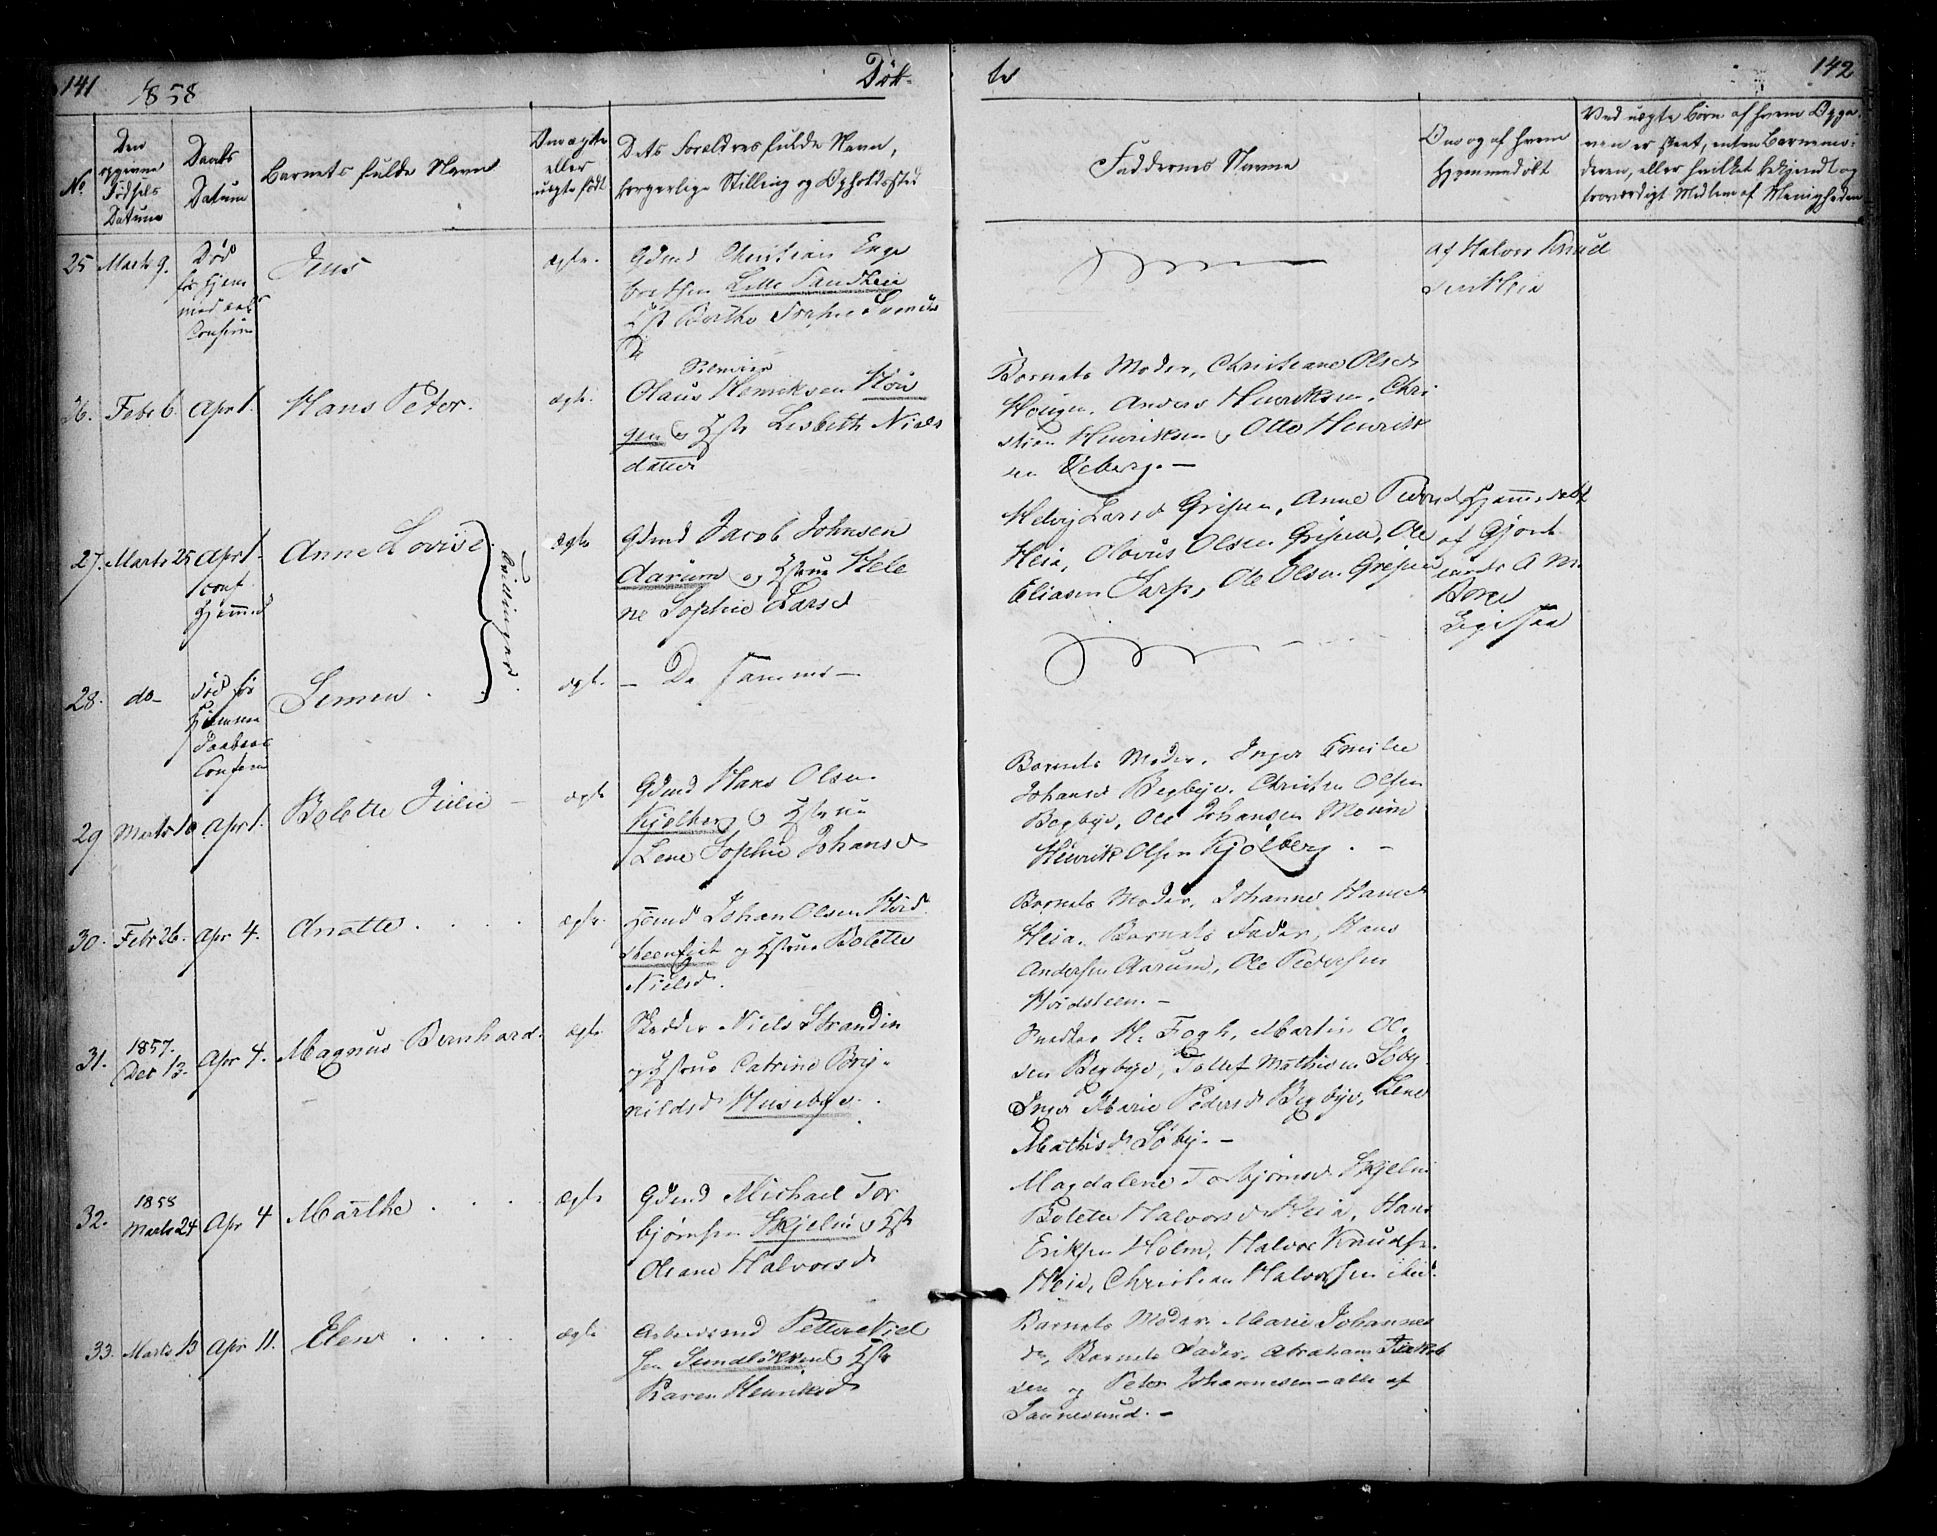 141
1858
Døb-
te
142
No
Den
opgivne
Fødsels
Datum
Daabs
Datum
Barnets fulde Navn
Om ægte
eller
uægte født
Dets Forældres fulde Navn,
borgerlige Stilling og Opholdssted
Faddernes Navne
Om og af hvem
hjemmedøbt
Ved uægte Børn af hvem Opga-
ven er skeet, enten Barnemo-
deren, eller hvilket bekjendt og
troværdigt Medlem af Menigheden
25
Marts 9.
Død
før Hjem
med
Confirm
Jens
ægte.
Gdmd Christian Enge
bretsen Lille Sandheia
Hst Berthe Sophie
af Halvor Knud
sen Heia
26.
Febr 6.
Apr 1.
Hans Peter.
ægte.
Olaus Henriksen Hou
gen & Hst Lisbeth Niels
datter
Barnets Moder, Christiane Olsd
Hougen, Anders Henriksen, Chri
stian Henriksen, Otto Henrik
sen Viberg. -
27.
Marts 25
Apr 1.
Conf.
Hjemmed
Anne Lovise
Tvillinger.
ægte
Gdmd Jacob Johnsen
Aarum og Hstrue Hele
ne Sophie Larsd
Helvig Larsd Gripen, Anne Pedersd
Heia, Olavus Olsen Gripen, Ole
Eliasen Sarp, Ole Olsen Gripen
Hjemmedøbt
af Gjord
A M.
28.
do
død før
Hjemme
Daabens
Confirm
Simen .
ægte.
- De samme -
29
Marts 10
Apr 1.
Bolette Julie -
ægte
Gdmd Hans Olsen
Kjølberg & Hstrue
Lene Sophie Johansd
Barnets Moder, Inger Emilie
Johansd Begbye, Christen Olsen
Begbye, Ole Johansen Moum
Henrik Olsen Kjølberg. -
30.
Febr 26.
Apr 4.
Anette . . .
ægte.
Hmd Johan Olsen Hvid
steen og Hstrue Bolette
Nielsd.
Barnets Moder, Johanne Hansd
Heia, Barnets Fader, Hans
Andersen Aarum, Ole Pedersen
Hvidsteen. -
31.
1857.
Dec 13.
Apr 4.
Magnus Bernhard.
ægte
Skrædder Niels Strandin
og Hstrue Catrine Bry-
nildsd Husebye.
Snedker H. Fogh, Martin Ol-
sen Begbye, Tollef Mathisen Løby
Inger Marie Pedersd Begbye, Lene
Mathisd Løby. -
32.
1858
Marts 24
Apr 4
Marthe . . .
ægte
Gdmd Michael Tor
bjørnsen Skjelin & Hst
Oleane Halvorsd
Magdalene Torbjørnsd Skjelin
Bolette Halvorsd Heia, Hans
Eriksen Holm, Halvor Knudsen
Heia, Christian Halvorsen ibid.
33.
Marts 13
Apr 11.
Elen . . . .
ægte
Arbeidsmd Petter Niel
sen Sundløkken & Hst
Karen Henriksd
Barnets Moder, Marie Johannes
dr, Barnets Fader, Abraham
sen og Peter Johannesen - alle af
Sannesund. -